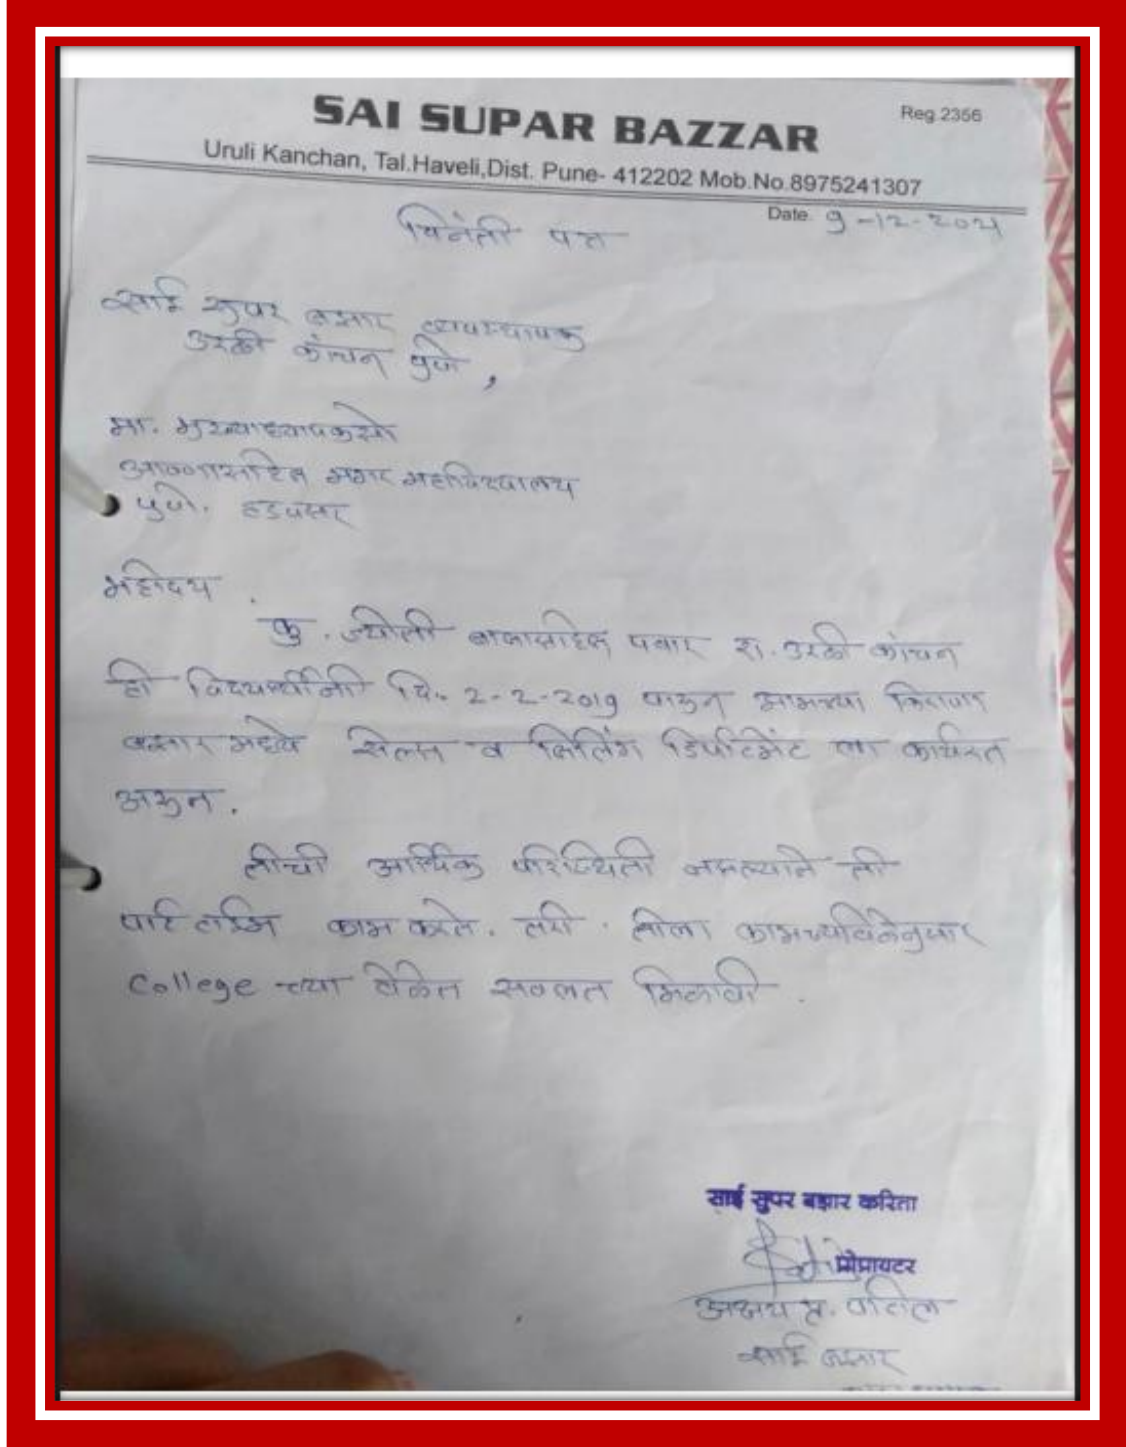 SAI SUPAR BAZZAR
Reg.2356
Uruli Kanchan, Tal.Haveli,Dist. Pune- 412202 Mob.No.8975241307
Date. 9-12-2021
विनंती पत्र
साई सुपर बझार व्यवस्थापक
उरळी कांचन पुणे,
मा. मुख्याध्यापकसो
आण्णासाहेब मगर महाविद्यालय
पुणे. हडपसर
महोदय.
कु. ज्योती बाळासाहेब पवार रा. उरळी कांचन
ही विद्यार्थीनी दि. 2-2-2019 पासुन आमच्या किराणा
बझार मध्ये सेल्स व बिलिंग डिपार्टमेंट ला कार्यरत
असुन.
तीची आर्थिक परिस्थिती नसल्याने ती
पार्ट टाईम काम करते. तरी. तीला
College च्या वेळेत सवलत मिळावी.
साई सुपर बझार करिता
प्रोप्रायटर
अक्षय प्र. पाटील
साई बझार